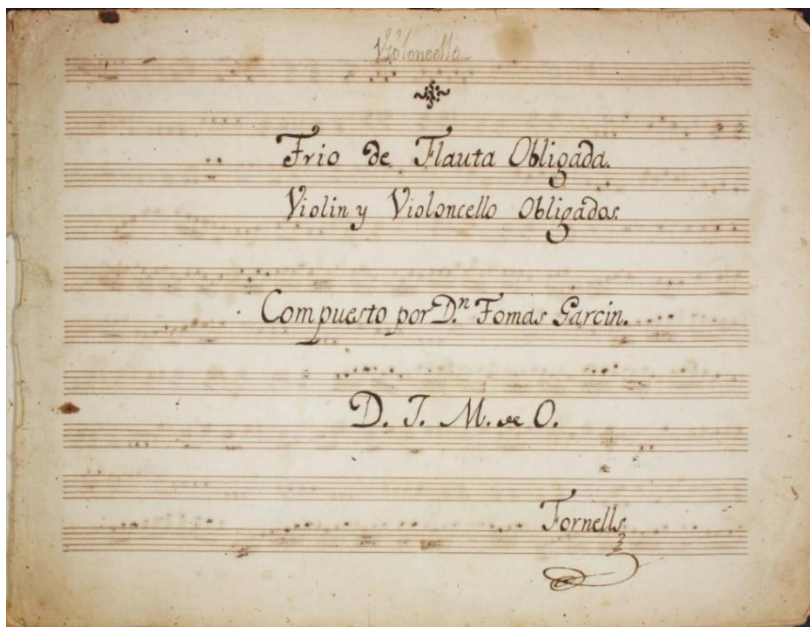 Violoncello
Trio de Flauta Obligada.
Violin y Violoncello Obligados.
Compuesto por D.ⁿ Tomas Garcin.
D. J. M. de O.
Tornells